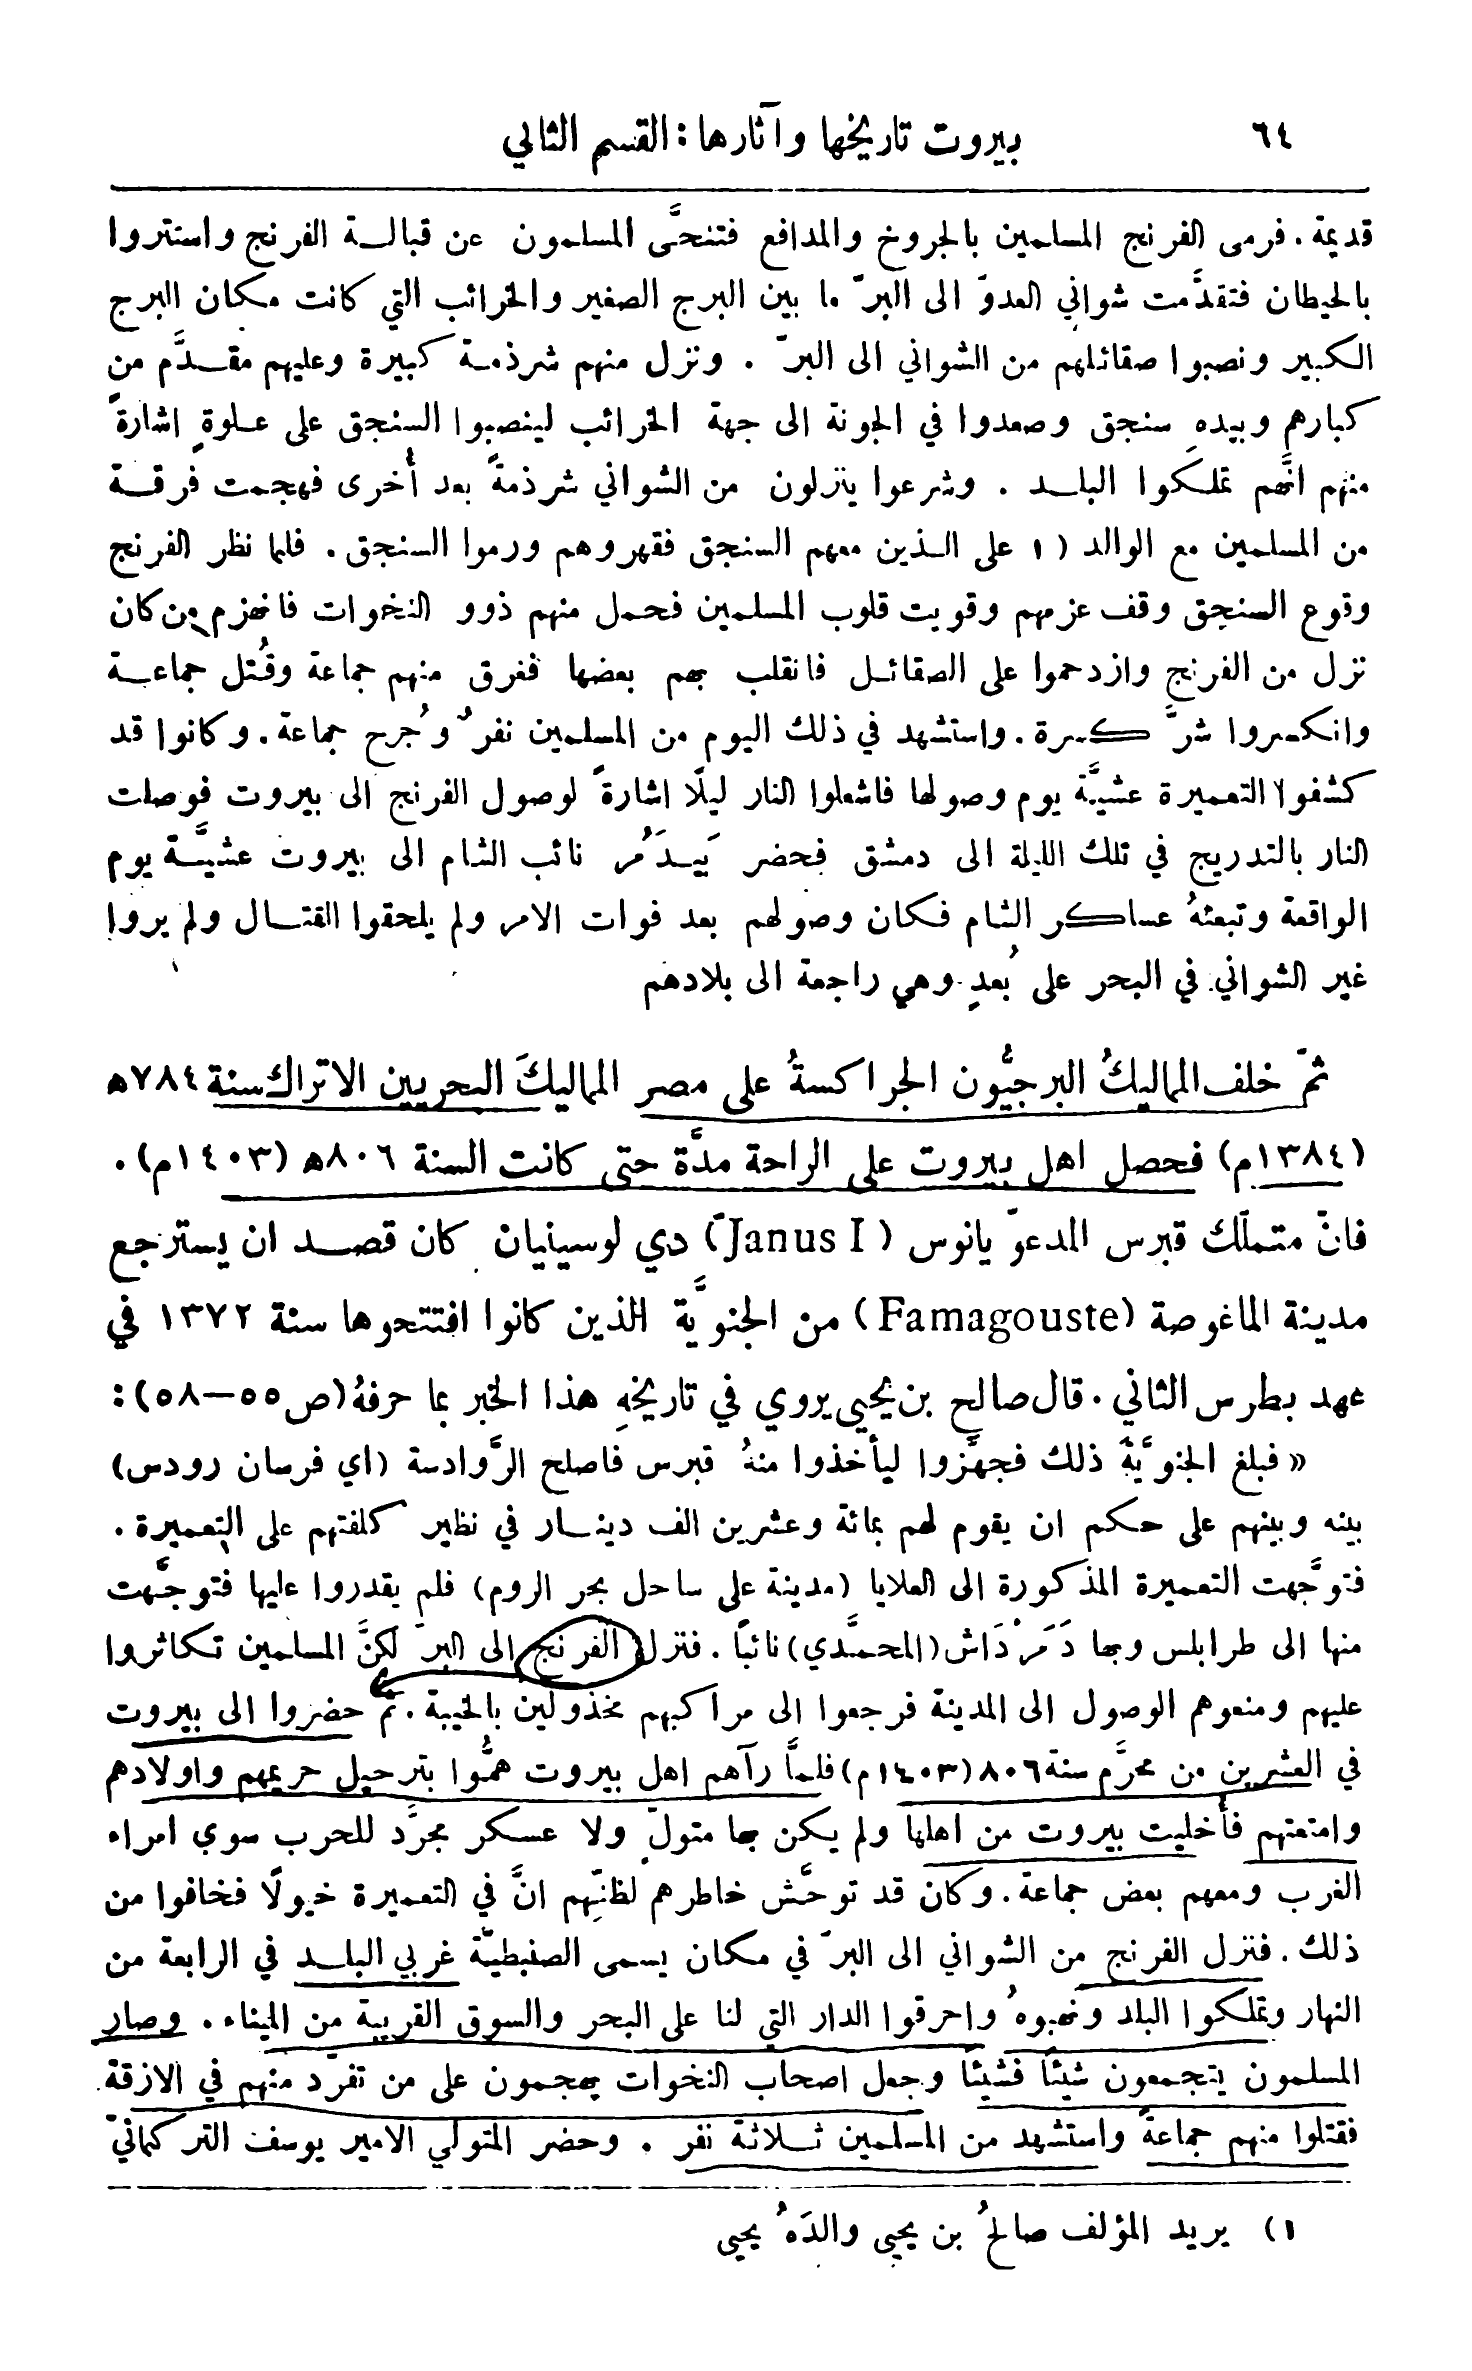 ٦٤ بيروت تاريخها وآثارها : القسم الثاني
قديمة . فرمى الفرنج المسلمين بالجروخ والمدافع فتنحَّى المسلمون عن قبالة الفرنج واستتروا
بالحيطان فتقدَّمت شواني العدوّ الى البرّ ما بين البرج الصغير والخرائب التي كانت مكان البرج
الكبير ونصبوا صقائلهم من الشواني الى البرّ . ونزل منهم شرذمة كبيرة وعليهم مقدَّم من
كبارهم وبيدهِ سنجق وصعدوا في الجونة الى جهة الخرائب لينصبوا السنجق على علوةٍ اشارةً
منهم انَّهم تملكوا البلد . وشرعوا ينزلون من الشواني شرذمةً بعد أُخرى فهجمت فرقة
من المسلمين مع الوالد (١ على الذين معهم السنجق فقهروهم ورموا السنجق . فلما نظر الفرنج
وقوع السنجق وقف عزمهم وقويت قلوب المسلمين فحمل منهم ذوو النخوات فانهزم من كان
نزل من الفرنج وازدحموا على الصقائل فانقلب بهم بعضها ففرق منهم جماعة وقُتل جماعة
وانكسروا شرَّ كسرة . واستشهد في ذلك اليوم من المسلمين نفرٌ وجُرح جماعة . وكانوا قد
كشفوا التعميرة عشيَّة يوم وصولها فاشعلوا النار ليلًا اشارةً لوصول الفرنج الى بيروت فوصلت
النار بالتدريج في تلك الليلة الى دمشق فحضر بَيدَمُر نائب الشام الى بيروت عشيَّة يوم
الواقعة وتبعتهُ عساكر الشام فكان وصولهم بعد فوات الامر ولم يلحقوا القتال ولم يروا
غير الشواني في البحر على بُعدٍ وهي راجعة الى بلادهم
ثمّ خلف المماليكُ البرجيُّون الجراكسةُ على مصر المماليكَ البحريين الاتراك سنة ٧٨٤ﻫ
(١٣٨٤م) فحصل اهل بيروت على الراحة مدَّة حتى كانت السنة ٨٠٦ﻫ (١٤٠٣م) .
فانّ متملّك قبرس المدعوّ يانوس (Janus I) دي لوسينيان كان قصد ان يسترجع
مدينة الماغوصة (Famagouste) من الجنويَّة الذين كانوا افتتحوها سنة ١٣٧٢ في
عهد بطرس الثاني . قال صالح بن يحيى يروي في تاريخهِ هذا الخبر بما حرفهُ (ص٥٥—٥٨) :
« فبلغ الجنويَّة ذلك فجهَّزوا ليأخذوا منهُ قبرس فاصلح الرَّوادسة (اي فرسان رودس)
بينه وبينهم على حكم ان يقوم لهم بمائة وعشرين الف دينار في نظير كلفتهم على التعميرة .
فتوجَّهت التعميرة المذكورة الى العلايا (مدينة على ساحل بحر الروم) فلم يقدروا عليها فتوجَّهت
منها الى طرابلس وبها دَمَرْدَاش (المحمَّدي) نائبًا . فنزل الفرنج الى البرّ لكنَّ المسلمين تكاثروا
عليهم ومنعوهم الوصول الى المدينة فرجعوا الى مراكبهم مخذولين بالخيبة . ثمّ حضروا الى بيروت
في العشرين من محرَّم سنة ٨٠٦ (١٤٠٣م) فلمَّا رآهم اهل بيروت همُّوا بترحيل حريمهم واولادهم
وامتعتهم فأُخليت بيروت من اهلها ولم يكن بها متولٍّ ولا عسكر مجرَّد للحرب سوى امراء
الغرب ومعهم بعض جماعة . وكان قد توحَّش خاطرهم لظنّهم انَّ في التعميرة خيولًا فخافوا من
ذلك . فنزل الفرنج من الشواني الى البرّ في مكان يسمى الصنبطيّة غربي البلد في الرابعة من
النهار وتملكوا البلد ونهبوهُ واحرقوا الدار التي لنا على البحر والسوق القريبة من الميناء . وصار
المسلمون يتجمعون شيئًا فشيئًا وجعل اصحاب النخوات يهجمون على من تفرَّد منهم في الازقة
فقتلوا منهم جماعةً واستشهد من المسلمين ثلاثة نفر . وحضر المتولي الامير يوسف التركمانيّ
١) يريد المؤلف صالحُ بن يحيى والدَهُ يحيى